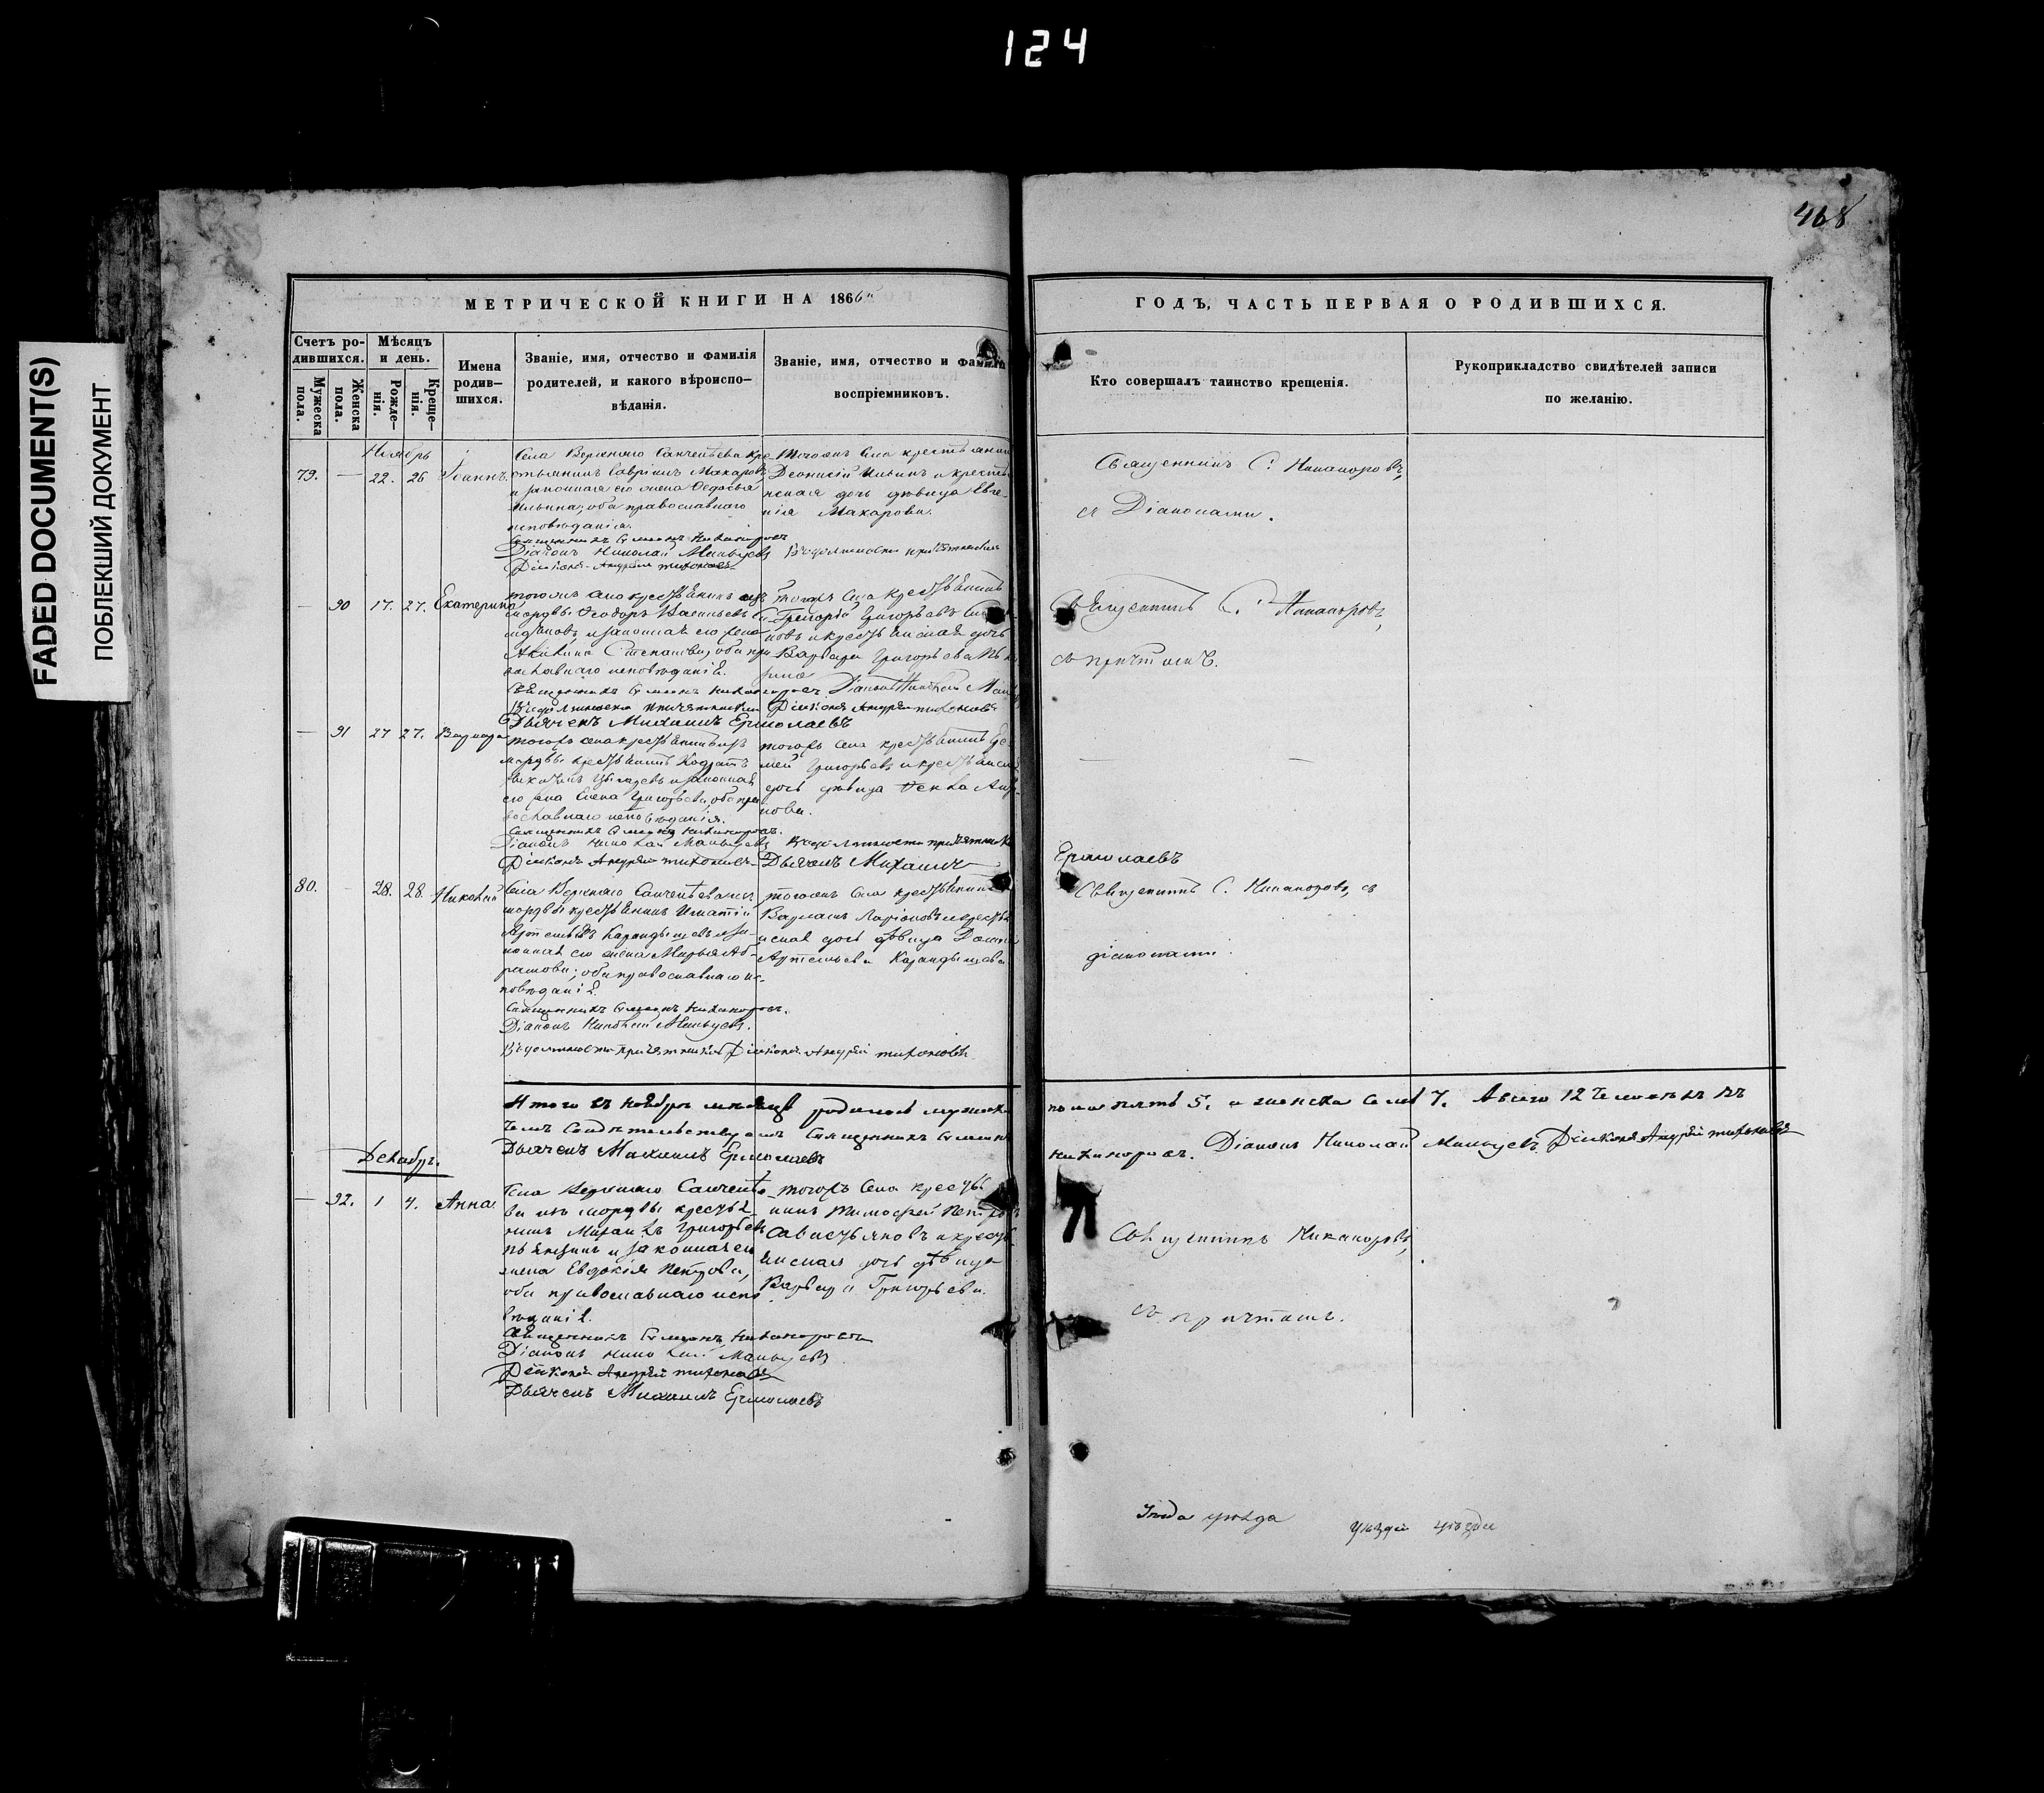 124
FADED DOCUMENT(S)
ПОБЛЕКШИЙ ДОКУМЕНТ
468
МЕТРИЧЕСКОЙ КНИГИ НА 1866
ГОДЪ, ЧАСТЬ ПЕРВАЯ О РОДИВШИХСЯ.
Счетъ ро-
дившихся.
Мужеска
пола.
Женска
пола.
Мѣсяцъ
и день.
Рожде-
нія.
Креще-
нія.
Имена
родив-
шихся.
Званіе, имя, отчество и фамилія
родителей, и какого вѣроиспо-
вѣданія.
Званіе, имя, отчество и фамилія
воспріемниковъ.
Кто совершалъ таинство крещенія.
Рукоприкладство свидѣтелей записи
по желанію.
Ноябрь
79. — 22. 26 Іоаннъ.
Села Верхняго Санчелѣева кре-
стьянинъ Гавріилъ Макаровъ
и законная его жена Ѳедосья
Ильина; оба православнаго
исповѣданія.
Священникъ Симеонъ Никаноровъ
Діаконъ Николай Мальцевъ
Діаконъ Андрей Тихоновъ
Тогожъ села крестьянинъ
Ильинъ и крестьян-
ская дочь дѣвица Евге-
нія Макарова.
Въ должности причетника
Священникъ С. Никаноровъ,
съ Діаконами.
— 90 17. 27. Екатерина
тогожъ села крестьянинъ изъ
мордвы Ѳеодоръ Васильевъ
и законная его жена
Акилина Степанова; оба пра
вославнаго исповѣданія.
Священникъ Симеонъ Никаноровъ Діаконъ Николай
Въ должности причетника Діаконъ Андрей Тихоновъ
Дьячекъ Михаилъ Ермолаевъ
тогожъ села крестьянинъ
Григорій Григорьевъ
новъ и крестьянская дочь
Варвара Григорьева
Священникъ С. Никаноровъ,
съ причтомъ.
— 91 27 27. Варвара
тогожъ села крестьянинъ изъ
мордвы крестьянинъ Кодратъ
и законная
его жена Елена Григорьева, оба пра
вославнаго исповѣданія.
Священникъ Симеонъ Никаноровъ.
Діаконъ Николай Мальцевъ
Діаконъ Андрей Тихоновъ
тогожъ села крестьянинъ
Григорьевъ и крестьянская
дочь дѣвица
Въ должности причетника
Дьячекъ Михаилъ
Ермолаевъ
80. — 28. 28. Николай
Села Верхняго Санчелѣева изъ
мордвы крестьянинъ Игнатій
Артемьевъ Карандышевъ и за-
конная его жена Марья Аб-
рамова; оба православнаго ис-
повѣданія.
Священникъ Симеонъ Никаноровъ.
Діаконъ Николай Мальцевъ.
Въ должности причетника Діаконъ Андрей Тихоновъ
тогожъ села крестьянинъ
Варлаамъ Ларіоновъ и крестьян
ская дочь дѣвица
Артемьева Карандышева
Священникъ С. Никаноровъ, съ
діаконами.
Итого въ ноябрѣ мѣсяцѣ родилось мужеска
пола пять 5. а женска семь 7. Всего 12 человѣкъ въ
чемъ свидѣтельствуемъ Священникъ Симеонъ
Никаноровъ. Діаконъ Николай Мальцевъ. Діаконъ Андрей Тихоновъ
Дьячекъ Михаилъ Ермолаевъ
Декабрь.
— 92. 1 4. Анна
Села Верхняго Санчелѣе-
ва изъ мордвы крестья-
нинъ Михаилъ Григорьевъ
и законная его
жена Евдокія Петрова,
оба православнаго испо
вѣданія.
Священникъ Симеонъ Никаноровъ
Діаконъ Николай Мальцевъ
Діаконъ Андрей Тихоновъ
Дьячекъ Михаилъ Ермолаевъ
тогожъ села крестья
нинъ Тимофей Петровъ
и крестья
янская дочь дѣвица
Варвара Григорьева.
Священникъ Никаноровъ,
съ причтомъ.
уѣзда
уѣзда уѣзда